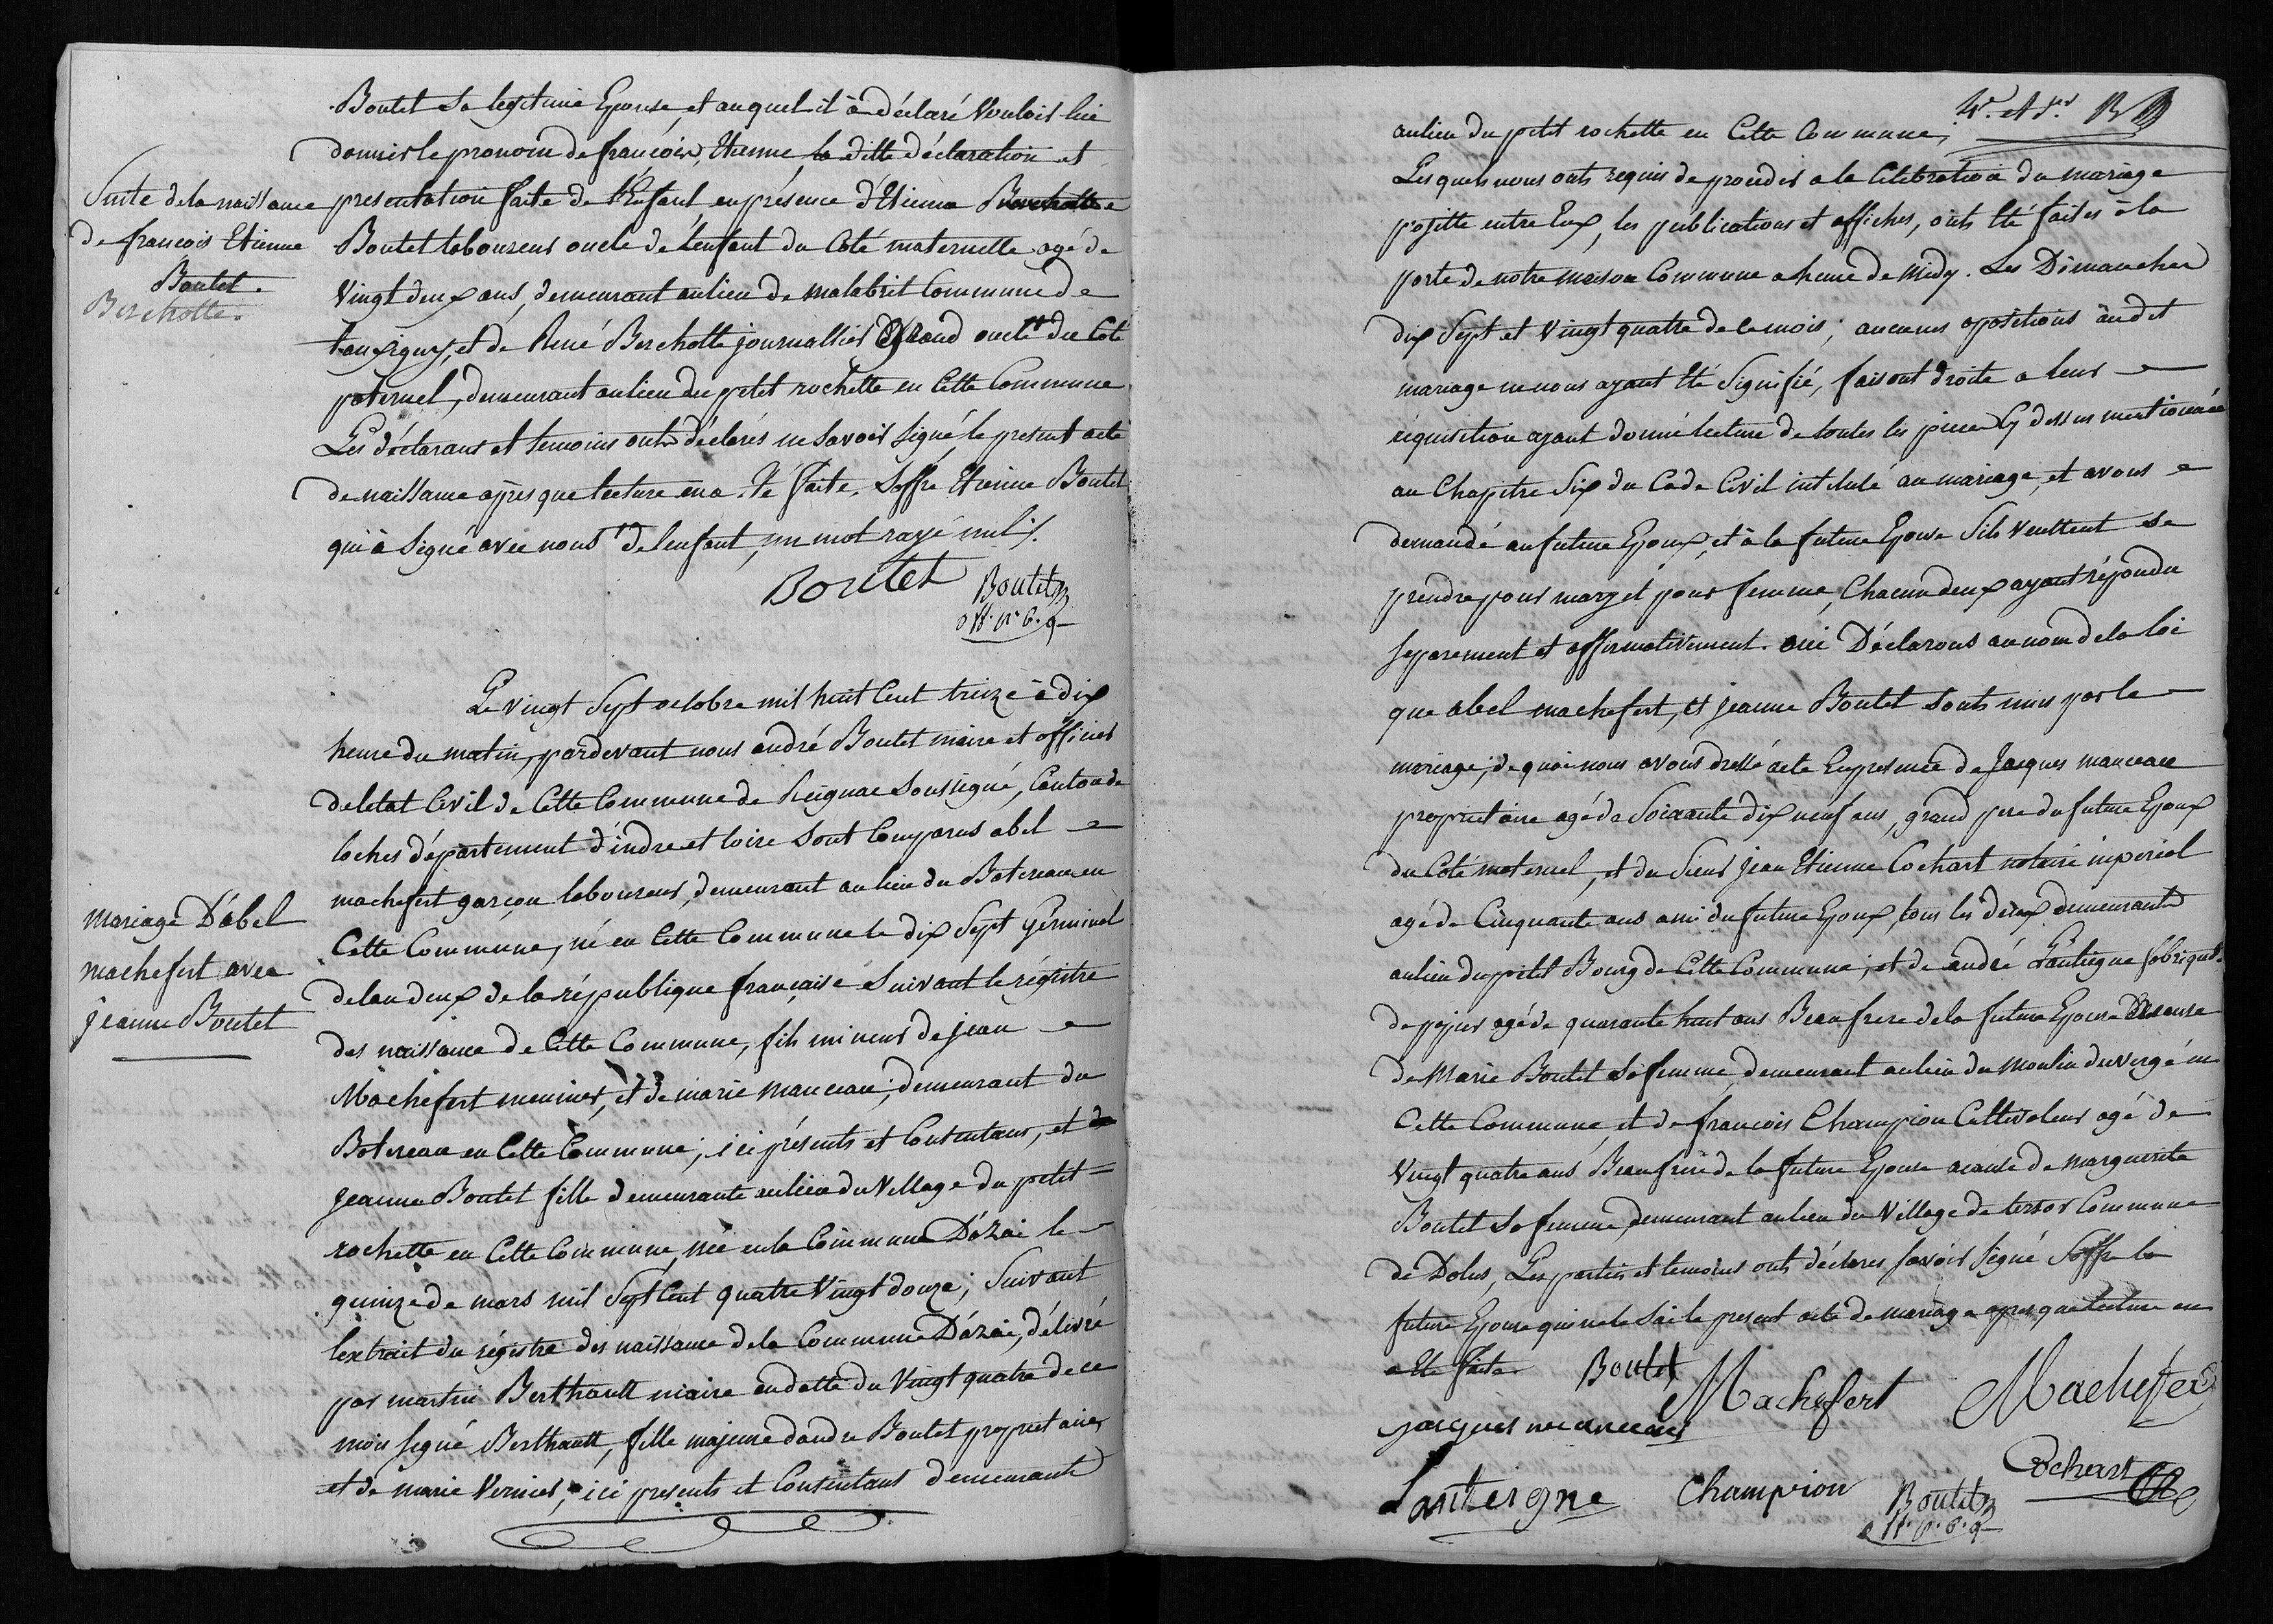 Boutet sa legitime Epouse, et auquel il à déclaré Vouloir lui
donner le pronom de françois, Etienne, la ditte déclaration et
Suite de la naissance
de françois Etienne
Boutet.
Berchotte.
présentation faite de l'Enfant en présence d'Etienne Berchotte
Boutet laboureur oncle de l'enfant du Coté maternelle agé de
Vingt deux ans, demeurant au lieu de malabrit Commune de
tauxigny, et de René Berchotte journallier Grand oncle du Coté
paternel, demeurant au lieu du petit rochette en Cette Commune
Les déclarans et temoins onts déclarés ne Savoir Signé le present acte
de naissance apres que lecture en a été faite. Soffre Etienne Boutet
qui à Signé avec nous de lenfant, un mot rayé nul
Boutet
Boutet
Le vingt Sept octobre mil huit Cent treize à dix
heure du matin, pardevant nous andré Boutet maire et officier
de letat Civil de Cette Commune de Reignac Soussigné, Canton de
loches département d'indre et loire Sont Comparus abel
mariage D'abel
machefert avec
jeanne Boutet
machefert garçon laboureur, demeurant au lieu du Batereau en
Cette Commune, né en Cette Commune le dix Sept Germinal
de lan deux de la république française Suivant le régistre
des naissance de Cette Commune, fils mineur de jean
Machefert meunier, et de marie manceau, demeurant du
Batereau en Cette Commune; ici présents et Consentans, et de
jeanne Boutet fille demeurante au lieu du Village du petit
rochette en Cette Commune, née en la Commune D'azai le
quinze de mars mil Sept Cent quatre Vingt douze; Suivant
lextrait du régistre des naissance de la Commune D'azai, délivré
par martin Berthault maire en datte du Vingt quatre de ce
mois signé Berthault, fille majeure dandre Boutet proprietaire
et de marie Vernier, ici presents et Consentans demeurants
au lieu du petit rochette en Cette Commune,
Lesquels nous onts requis de proceder a la Celebration du mariage
projetté entre Eux, les publications et affiches, onts Eté faites à la
porte de notre maison Commune a heure de midy. Les Dimanches
dix Sept et Vingt quatre de ce mois; aucunes opositions audit
mariage ne nous ayant Eté Signifié, faisant droite a leur
réquisition ayant donné lecture de toutes les pieces Cy dessus mentionnée
au Chapitre Six du Code Civil intitulé au mariage, et avons
demandé au future Epoux, et à la future Epouse Sils veullent se
prendre pour mary et pour femme, Chacun deux ayant répondu
separement et affirmativement. oui Déclarons au nom de la loi
que abel machefert, et jeanne Boutet Sonts unis par le
mariage; de quoi nous avons dressé acte En presence de Jacques manceau
proprietaire agé de Soixante dix neuf ans, grand pere du future Epoux
du Coté maternel, et du Sieur Jean Etienne Cochart notaire imperial
agé de Cinquante ans ami du future Epoux, tous les deux demeurants
au lieu du petit Bourg de Cette Commune; et de andré Lanteigne fabriquant
de papier agé de quarante huit ans Beaufrere de la future Epouse acause
de Marie Boutet Sa femme, demeurant au lieu du moulin du vergé en
Cette Commune et de françois Champion Cultivateur agé de
Vingt quatre ans Beaufrere de la future Epouse acause de marguerite
Boutet Sa femme, demeurant au lieu du Village de Commune
de Dolus, Les parties et temoins onts déclarés savoir signé Soffre la
future Epouse qui ne le Sai le present acte de mariage apres que lecture en
a Eté faite.
Boutet
Machefert
Machefer
jacques manceau
Cochart
Lanteigne
Champion
Boutet